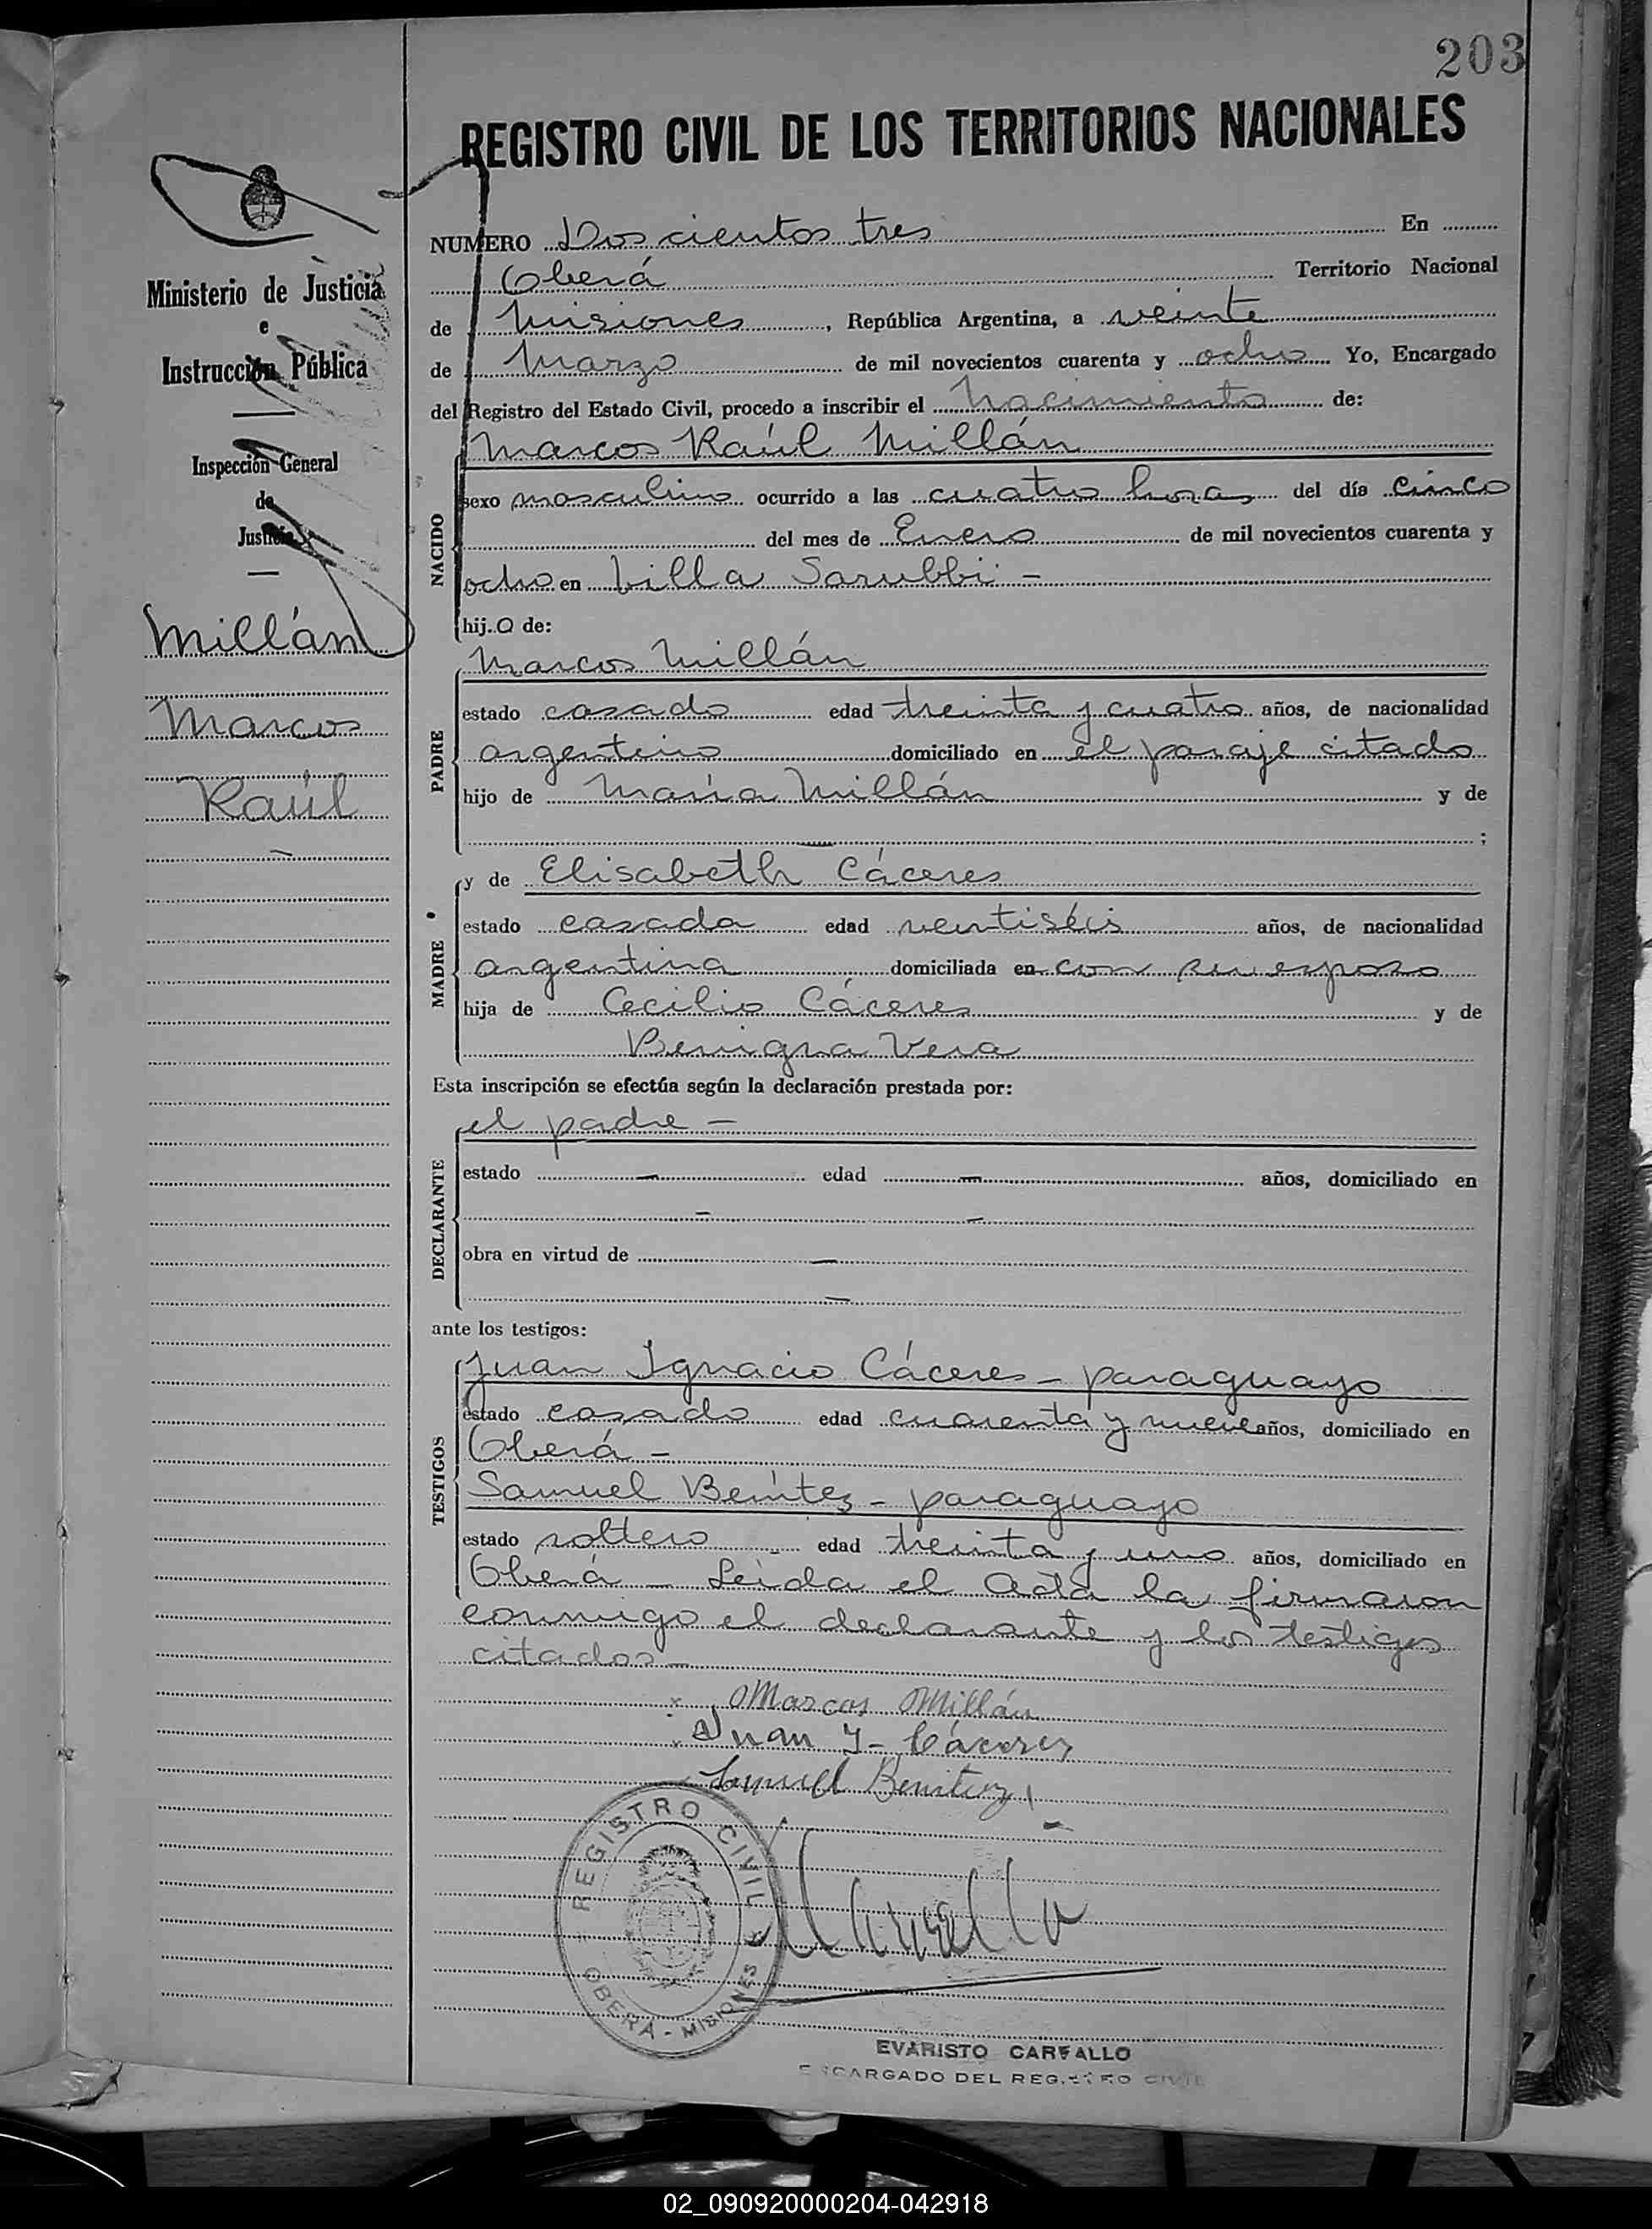 203
REGISTRO CIVIL DE LOS TERRITORIOS NACIONALES
Ministerio de Justicia
e
Instrucción Pública
Inspección General
de
Justicia
Millán
Marcos
Raúl
NUMERO Doscientos tres En
Oberá Territorio Nacional
de Misiones, República Argentina, a veinte
de Marzo de mil novecientos cuarenta y ocho Yo, Encargado
del Registro del Estado Civil, procedo a inscribir el Nacimiento de:
NACIDO
Marcos Raúl Millán
sexo masculino ocurrido a las cuatro horas del día cinco
del mes de Enero de mil novecientos cuarenta y
ocho en Villa Sarubbi -
hijo de:
PADRE
Marcos Millán
estado casado edad treinta y cuatro años, de nacionalidad
argentino domiciliado en el paraje citado
hijo de María Millán y de
— ;
MADRE
y de Elisabeth Cáceres
estado casada edad veintiséis años, de nacionalidad
argentina domiciliada en con su esposo
hija de Cecilio Cáceres y de
Benigna Vera
Esta inscripción se efectúa según la declaración prestada por:
DECLARANTE
el padre -
estado — edad — años, domiciliado en
— —
obra en virtud de —
—
ante los testigos:
TESTIGOS
Juan Ignacio Cáceres - paraguayo
estado casado edad cuarenta y nueve años, domiciliado en
Oberá -
Samuel Benítez - paraguayo
estado soltero edad treinta y uno años, domiciliado en
Oberá - Leída el Acta la firmaron
conmigo el declarante y los testigos
citados -
Marcos Millán
Juan I- Cáceres
Samuel Benitez
REGISTRO CIVIL
OBERA - MISIONES
EVARISTO CARVALLO
ENCARGADO DEL REGISTRO CIVIL
02_090920000204-042918